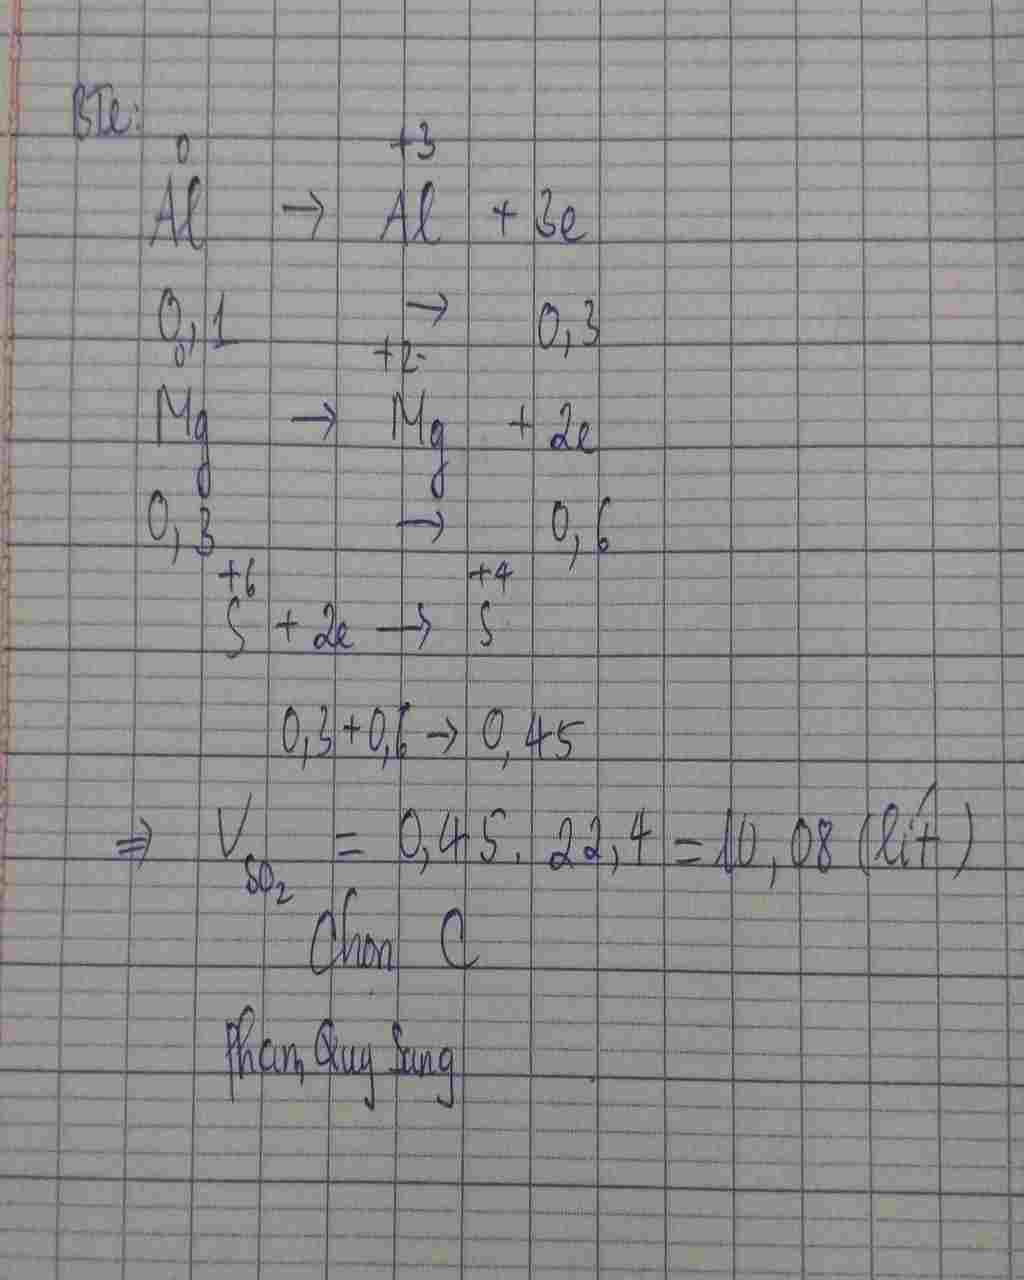 BTe:
0 +3
Al → Al + 3e
0,1 → 0,3
0 +2
Mg → Mg + 2e
0,3 → 0,6
+6 +4
S + 2e → S
0,3+0,6 → 0,45
⇒ V SO2 = 0,45. 22,4 = 10,08 (lít)
Chọn C
Phạm Quy Sang